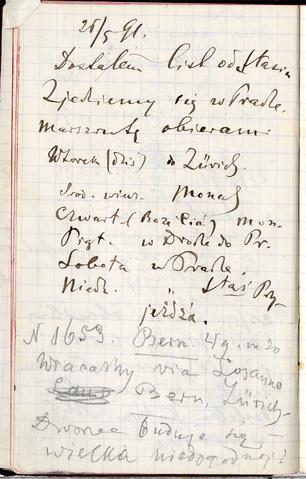 26/5 91.
Dostałem list od Stasia
Zjedziemy się w Pradze.
Marszrutę obieram:
Wtorek (dziś) do Zürich.
Środ. wiecz. Monach
Czwart (Boże Cia) mon-
Piąt. w Drodze do Pr.
Sobota w Pradze.
Niedz. " Staś Przy-
jeżdża.
N 1653. Bern. 4/9. m 20
Wracałby via Losanne
Bern, Zürich-
Dworzec buduje się -
wielka niedogodność